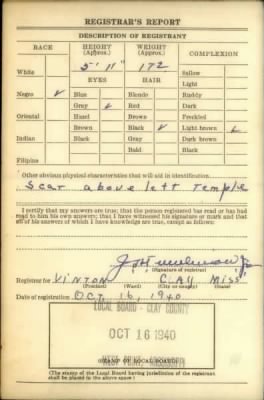 REGISTRAR'S REPORT
DESCRIPTION OF REGISTRANT
RACE HEIGHT (Approx.) WEIGHT (Approx.) COMPLEXION
White 5' 11" 172 Sallow
EYES HAIR Light
Negro ✓ Blue Blonde Ruddy
Gray ✓ Red Dark
Oriental Hazel Brown Freckled
Brown Black ✓ Light brown ✓
Indian Black Gray Dark brown
Bald Black
Filipino
Other obvious physical characteristics that will aid in identification
Scar above left Temple
I certify that my answers are true; that the person registered has read or has had
read to him his own answers; that I have witnessed his signature or mark and that
all of his answers of which I have knowledge are true, except as follows:
(Signature of registrar)
Registrar for VINTON CLAY MISS
(Precinct) (Ward) (City or county) (State)
Date of registration OCT 16, 1940
LOCAL BOARD CLAY COUNTY
OCT 16 1940
WEST POINT, MISSISSIPPI
(STAMP OF LOCAL BOARD)
(The stamp of the Local Board having jurisdiction of the registrant
shall be placed in the above space.)